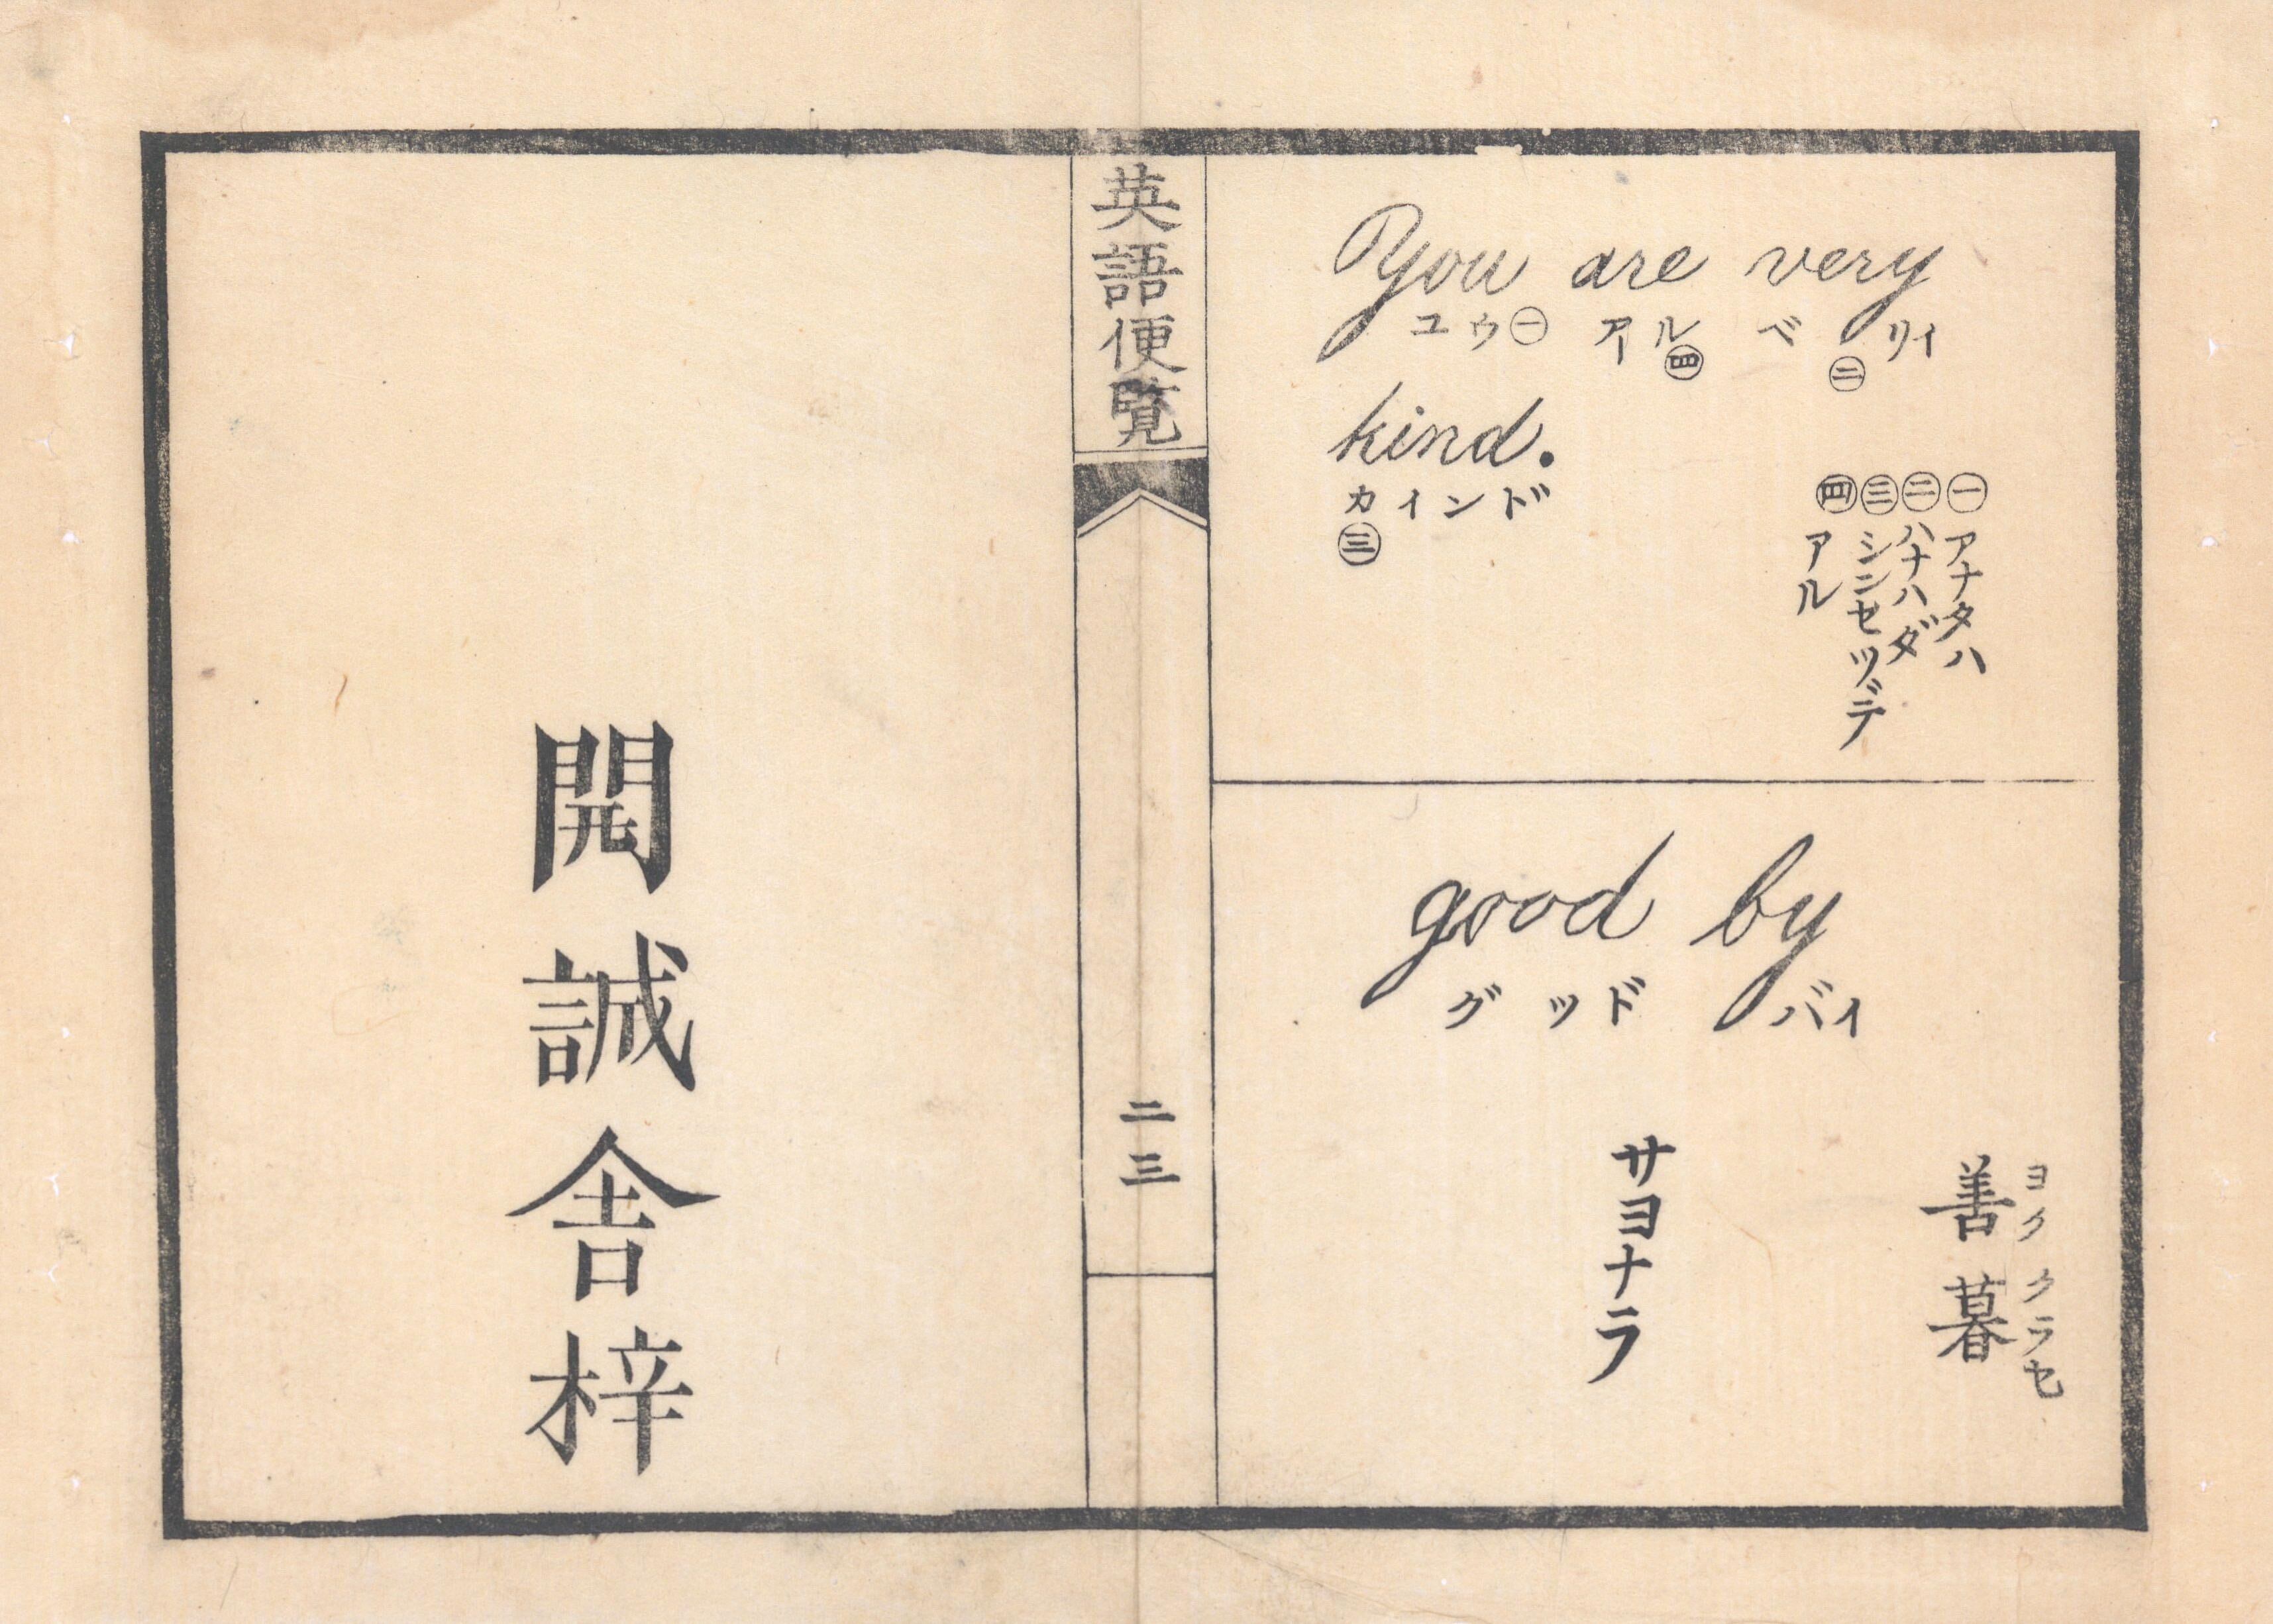 You are very
ユウ㊀ アル㊃ ベリイ㊁
kind.
カインド
㊂
㊀アナタハ
㊁ハナハダ
㊂シンセツデ
㊃アル
good by
グッド バイ
ヨク クラセ
善暮
サヨナラ
英語便覧
二三
開誠舎梓